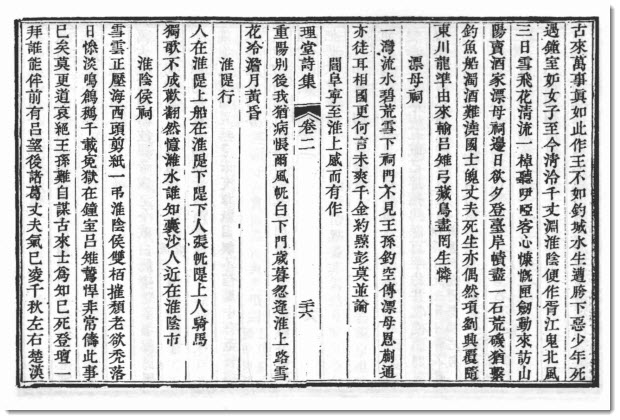 古來萬事真如此作王不如釣城水生遭胯下惡少年死
過鐘室如女子至今清泠千丈淵淮陰便作胥江鬼北風
三日雪飛花清流一棹聽咿啞客心慷慨匣劍動來訪山
陽賣酒家漂母祠邊日欲夕登臺岸幘盡一石荒磯猶繫
釣魚船濁酒難澆國士魄丈夫死生亦偶然項劉興覆隨
東川龍準由來輸呂雉弓藏鳥盡罔生憐
漂母祠
一灣流水碧荒雪下祠門不見王孫釣空傳漂母恩蒯通
亦徒耳相國更何言未爽千金約黥彭莫並論
聞阜寧至淮上感而有作
理堂詩集 卷二 二六
重陽別後我猶病恨爾風帆白下門歲暮忽逢淮上路雪
花冷澹月黃昏
淮隄行
人在淮隄上船在淮隄下隄下人張帆隄上人騎馬
獨歌不成歡翻然憶濉水誰知囊沙人近在淮陰市
淮陰侯祠
雪雲正壓海西頭剪紙一弔淮陰侯雙栢摧頹老欲禿落
日慘淡鳴鵂鶹千載冤獄在鐘室呂雉鷙悍非常儔此事
已矣莫更道哀絕王孫難自謀古來士為知己死登壇一
拜誰能侔前有呂望後諸葛丈夫氣已凌千秋左右楚漢